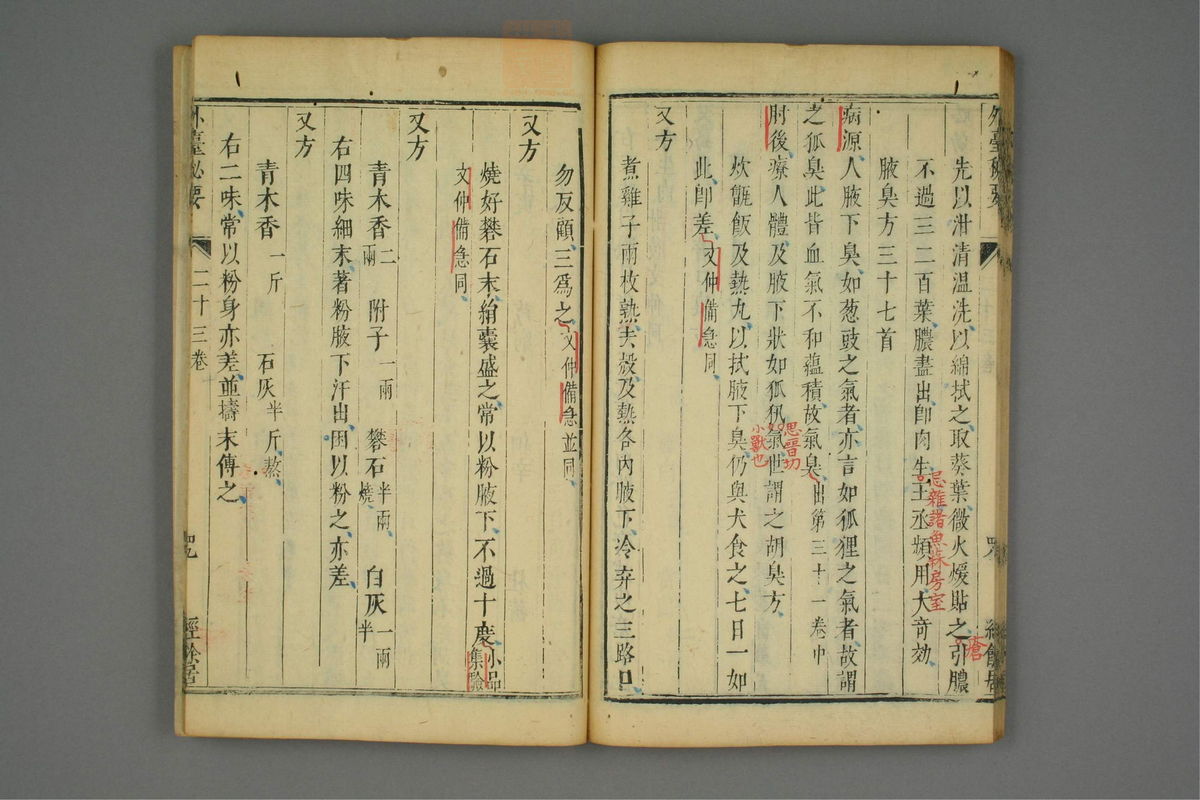 先以泔清温洗以綿拭之取葵葉微火煖貼之引膿
瘡
不過三二百葉膿盡出卽肉生王丞頻用大奇効
忌雜諸魚蒜房室
腋臭方三十七首
病源人腋下臭如葱豉之氣者亦言如狐狸之氣者故謂
之狐臭此皆血氣不和藴積故氣臭出第三十一卷中
肘後療人體及腋下狀如狐㹤氣世謂之胡臭方
思晉切
小獸也
炊甑飯及熱丸以拭腋下臭仍與犬食之七日一如
此卽差文仲備急同
又方
煮雞子兩枚熟去殼及熱各內腋下冷弃之三路口
勿反顧三爲之文仲備急並同
又方
燒好礬石末絹囊盛之常以粉腋下不過十度小品集驗
文仲備急同
又方
青木香二兩 附子一兩 礬石半兩燒 白灰一兩半
右四味細末著粉腋下汗出因以粉之亦差
又方
青木香一斤 石灰半斤熬
右二味常以粉身亦差並擣末傅之
外臺祕要 二十三卷 四九 經餘居
外臺祕要